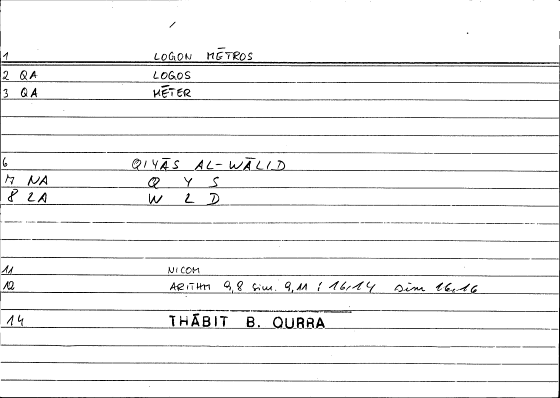 1 LOGON MĒTROS
2 QA LOGOS
3 QA MĒTER
6 QIYĀS AL-WĀLID
7 NA Q Y S
8 LA W L D
11 NICOM
12 ARITHM 9,8 sim. 9,11 ; 16,14 sim 16,16
14 THĀBIT B. QURRA